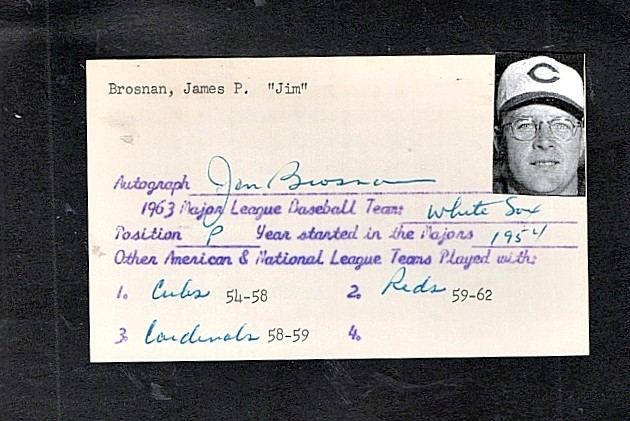 Brosnan, James P. "Jim"
C
Autograph Jim Brosnan
1963 Major League Baseball Team: White Sox
Position P Year started in the Majors 1954
Other American & National League Teams Played with:
1. Cubs 54-58 2. Reds 59-62
3. Cardinals 58-59 4.